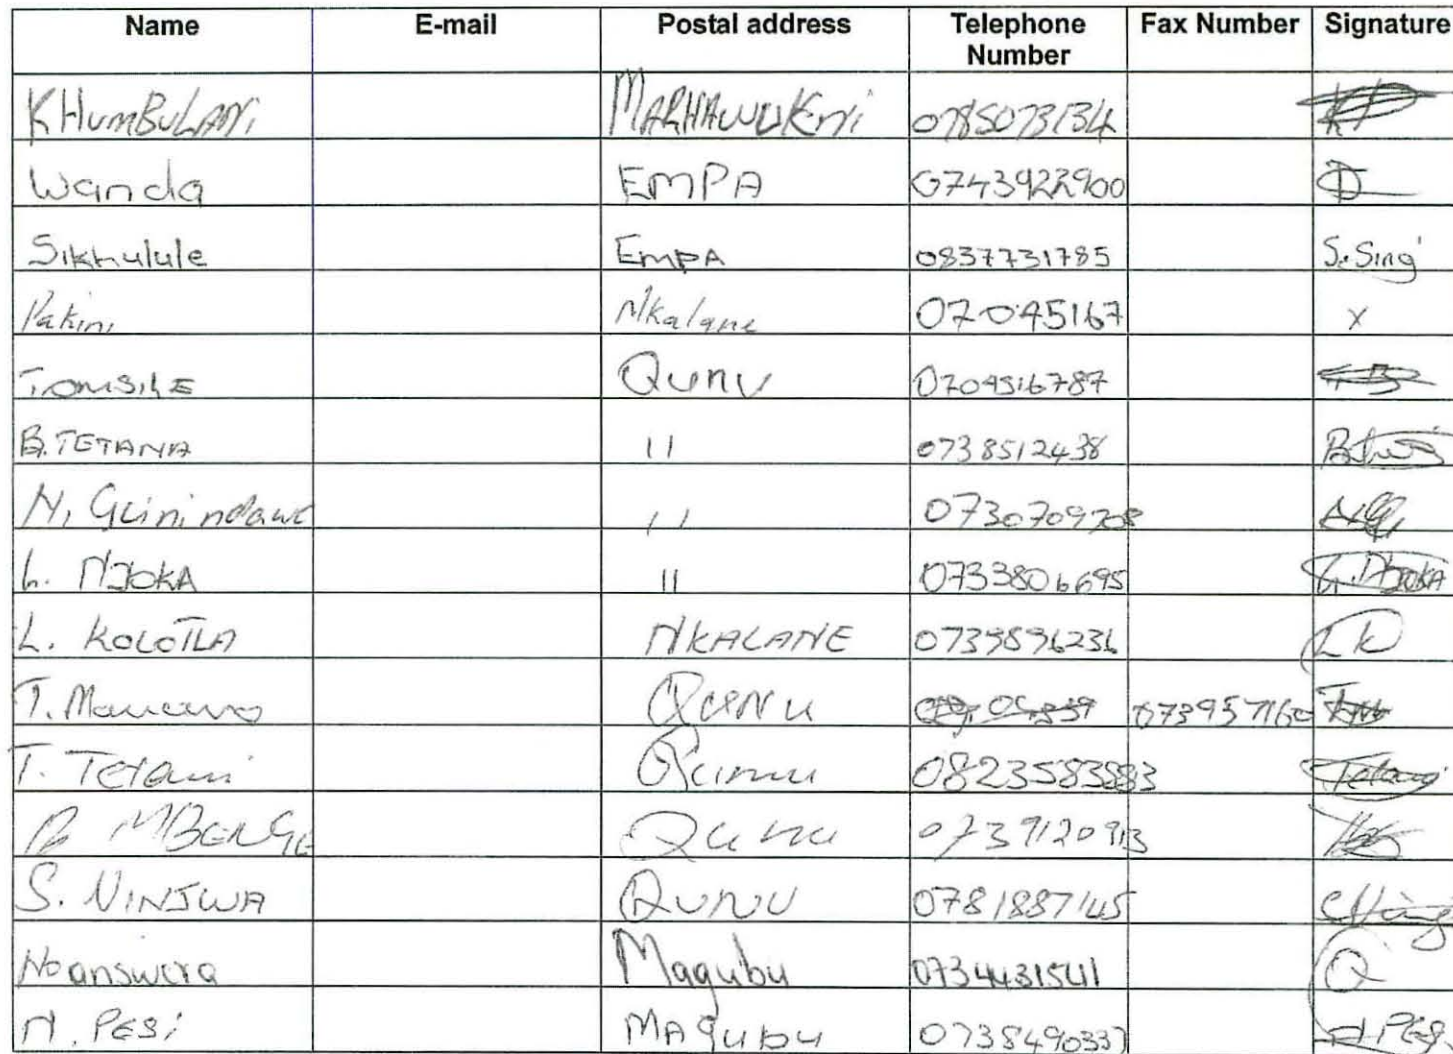 Name E-mail Postal address Telephone Number Fax Number Signature
KHUMBULANI MARHAWUKENI 0785073134
Wanda EMPA 0743922900
Sikhulule EMPA 0837731785 S.Sing
Pakini Nkalane 07045167 X
TOMSILE Qunu 0704516787
B.TETANA 11 0738512438
N. Gcinindawo 11 0730709708
L. NJOKA 11 0733806695 L.NJOKA
L. KOLOTLA NKALANE 0739896236 LK
T. Qunu 0739571160
T. Tetani Qunu 0823583883 Tetani
MBENGE Qunu 0739120913
S. NINJWA QUNU 0781887145
Noanswera Maqubu 0734431541
N. PESI MAqubu 0738490337 N.PESI